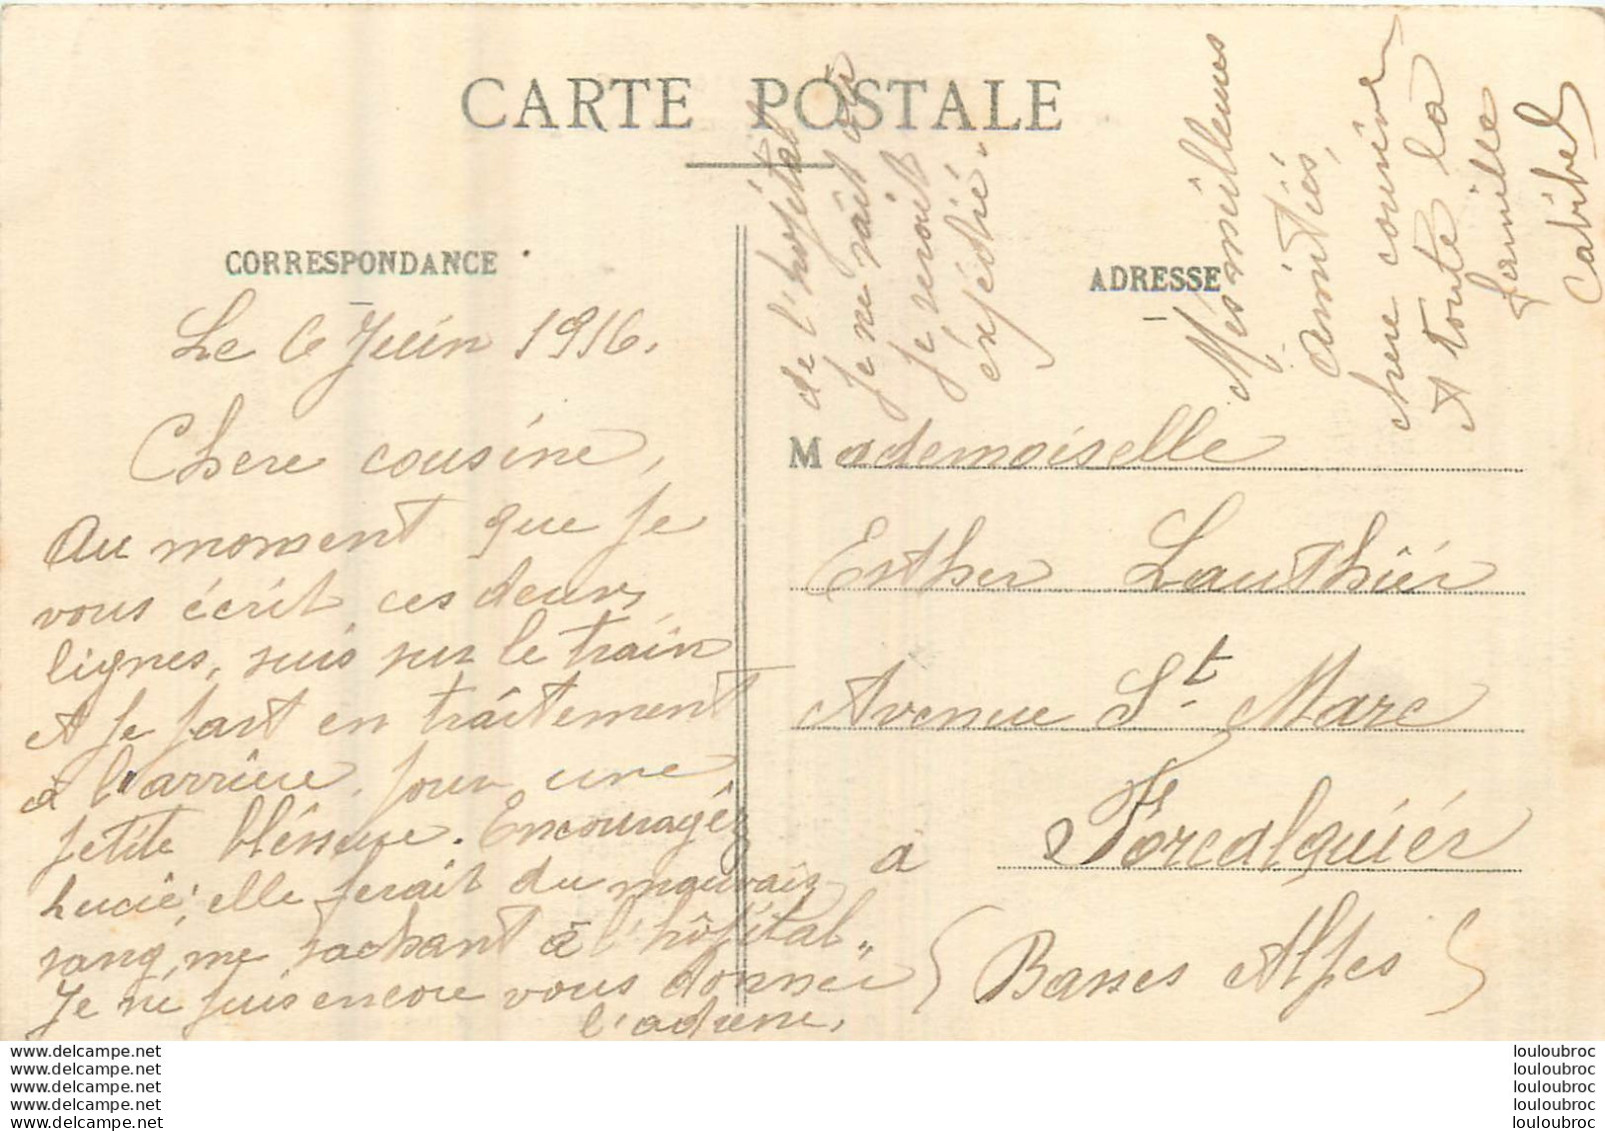 CARTE POSTALE
CORRESPONDANCE
Le 6 Juin 1916.
Chere cousine,
Au moment que je
vous écrit ces deux
lignes, suis sur le train
et je part en traitement
à l'arrière, pour une
petite blessure. Encouragéz
Lucie, elle serait du mauvais
sang, me sachant à l'hôpital"
Je ne puis encore vous donner
l'adresse,
de l'hopital
Je ne sait où
je serait
expédié"
ADRESSE
Mes meilleures
amitiés,
chere cousine
et toute la
famille
Cabibel
Mademoiselle
Esther Lauthier
Avenue St. Marc
à Forcalquiér
(Basses Alpes)
www.delcampe.net
www.delcampe.net
www.delcampe.net
www.delcampe.net
www.delcampe.net
louloubroc
louloubroc
louloubroc
louloubroc
louloubroc